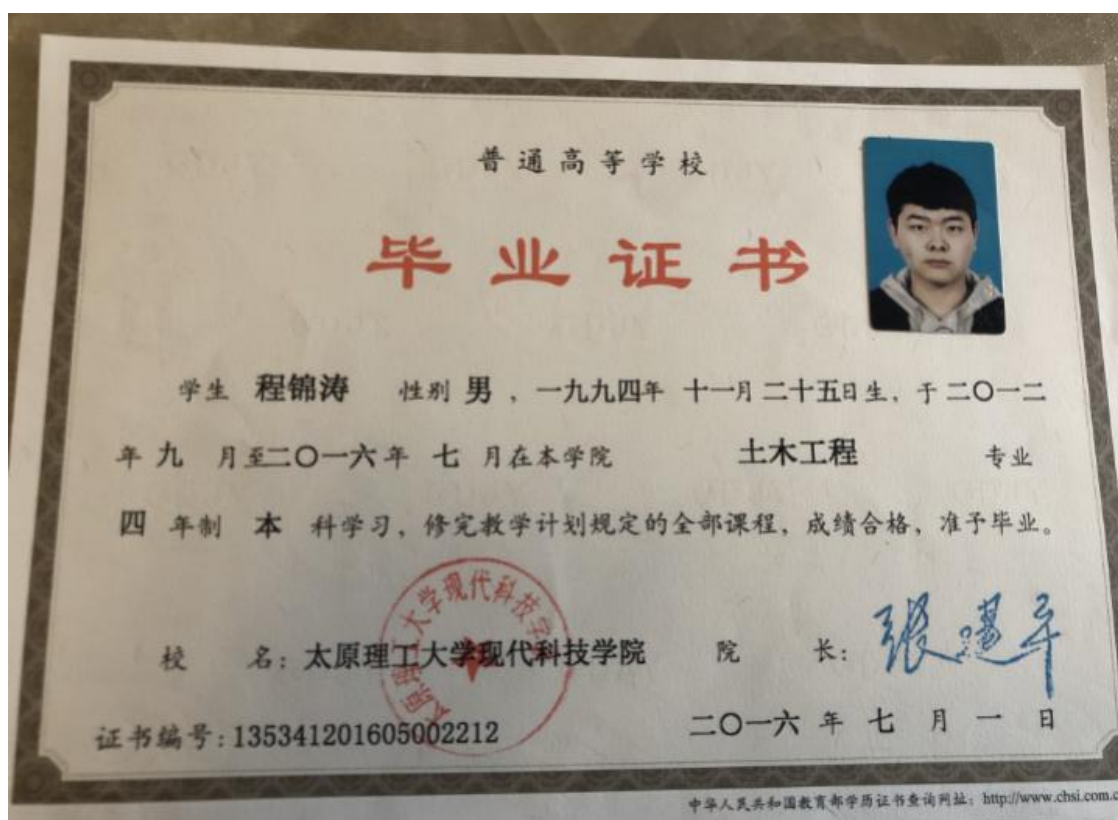 普通高等学校
毕业证书
学生 程锦涛 性别 男，一九九四年 十一月 二十五日生，于 二〇一二
年 九 月至二〇一六年 七 月在本学院 土木工程 专业
四 年制 本 科学习，修完教学计划规定的全部课程，成绩合格，准予毕业。
太原理工大学现代科技学院
校 名：太原理工大学现代科技学院 院 长：张建平
证书编号：135341201605002212 二〇一六 年 七 月 一 日
中华人民共和国教育部学历证书查询网址：http://www.chsi.com.c